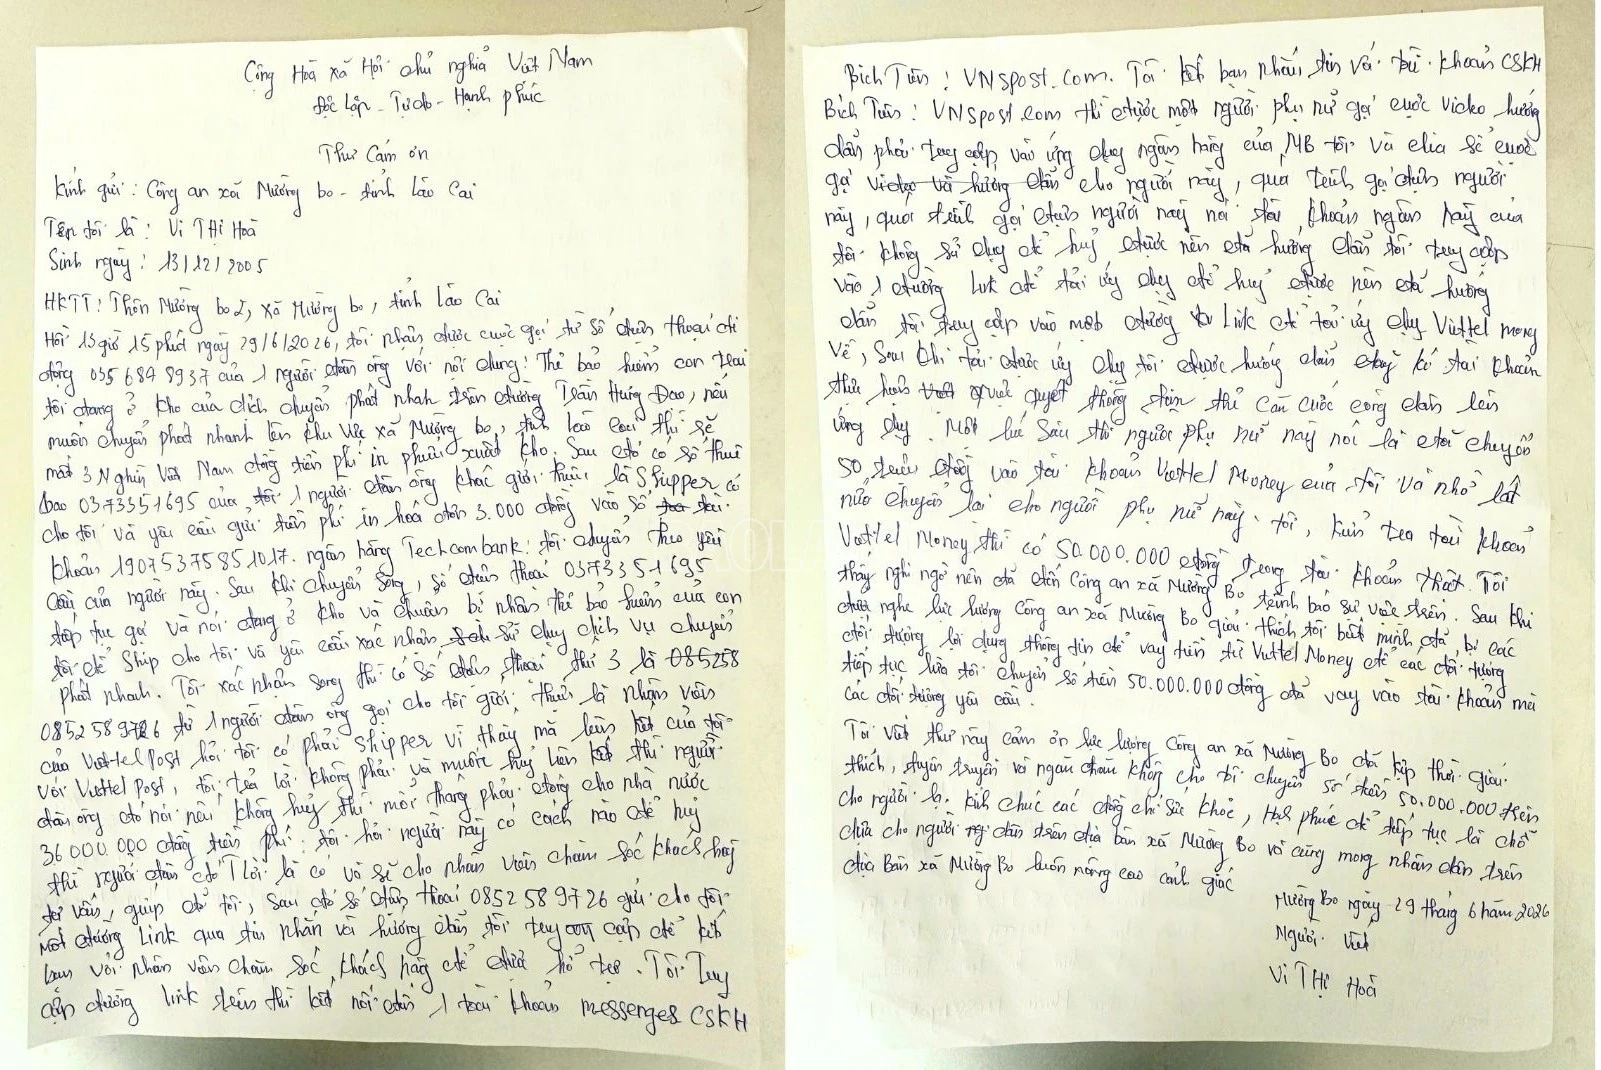 Cộng Hoà xã Hội chủ nghĩa Việt Nam
Độc lập - Tự do - Hạnh phúc
Thư Cảm ơn
Kính gửi : Công an xã Mường bo - tỉnh Lào Cai
Tên tôi là : Vi THị Hoà
Sinh ngày : 13/12/2005
HKTT : Thôn Mường bo 2, xã Mường bo, tỉnh Lào Cai
Hồi 13 giờ 15 phút ngày 29/6/2026, tôi nhận được cuộc gọi từ số điện thoại di
động 035 684 8937 của 1 người đàn ông với nội dung : Thẻ bảo hiểm con trai
tôi đang ở kho của dịch chuyển phát nhanh trên đường Trần Hưng Đạo, nếu
muốn chuyển phát nhanh lên khu vực xã Mường bo, tỉnh Lào Cai thì sẽ
mất 3 Nghìn Việt Nam đồng tiền phí in phiếu xuất kho. Sau đó có số thuê
bao 0373351695 của tôi 1 người đàn ông khác giới thiệu là Shipper có
cho tôi và yêu cầu gửi tiền phí in hoá đơn 3.000 đồng vào số tài
khoản 19075375851017. ngân hàng Techcombank : tôi chuyển theo yêu
cầu của người này. Sau khi chuyển song, số điện thoại 0373351695
tiếp tục gọi và nói đang ở kho và chuẩn bị nhận thẻ bảo hiểm của con
tôi để Ship cho tôi và yêu cầu xác nhận sử dụng dịch vụ chuyển
phát nhanh. Tôi xác nhận song thì có số điện thoại thứ 3 là 085258
0852589726 từ 1 người đàn ông gọi cho tôi giới thiệu là nhận viên
của Viettel Post hỏi tôi có phải shipper vì thấy mã liên kết của tôi
với Viettel Post, tôi trả lời không phải và muốn huỷ liên kết thì người
đàn ông đó nói nếu không huỷ thì mỗi tháng phải đóng cho nhà nước
36000.000 đồng tiền phí : tôi hỏi người này có cách nào để huỷ
thì người đàn đó Tlời là có và sẽ cho nhân viên chăm sóc khách hàng
tư vấn, giúp đỡ tôi, sau đó số điện thoại 0852589726 gửi cho tôi
một đường Link qua tin nhắn và hướng dẫn tôi truy cập để kết
bạn với nhân viên chăm sóc khách hàng để được hỗ trợ. Tôi Truy
cập đường link trên thì kết nối đến 1 tài khoản messenges CSKH
Bích Tiên : VNSpost.com. Tôi kết bạn nhắn tin và tài khoản CSKH
Bích Tiên : VNSpost.com thì được một người phụ nữ gọi cuộc video hướng
dẫn phải truy cập vào ứng dụng ngân hàng của MB tôi và chia sẻ cuộc
gọi video và hướng dẫn cho người này, quá trình gọi điện người
này, quá trình gọi điện người này nói tài khoản ngân hàng của
tôi không sử dụng để huỷ được nên đã hướng dẫn tôi truy cập
vào 1 đường link để tải ứng dụng để huỷ được nên đã hướng
dẫn tôi truy cập vào một đường Link để tải ứng dụng Viettel mony
về, sau khi tải được ứng dụng tôi được hướng dẫn đăng kí tài khoản
thực hiện quét thông tin thẻ căn cước công dân lên
ứng dụng. Một lúc sau thì người phụ nữ này nói là đã chuyển
50 triệu đồng vào tài khoản Viettel Money của tôi và nhờ lát
nữa chuyển lại cho người phụ nữ này. tôi, kiểm tra tài khoản
Viettel Money thì có 50.000.000 đồng trong tài khoản thật. Tôi
thấy nghi ngờ nên đã đến Công an xã Mường Bo trình báo sự việc trên. Sau khi
được nghe lực lượng Công an xã Mường Bo giải thích tôi biết mình đã bị các
đối tượng lợi dụng thông tin để vay tiền từ Viettel Money để các đối tượng
tiếp tục lừa tôi chuyển số tiền 50.000.000 đồng đã vay vào tài khoản mà
các đối tượng yêu cầu.
Tôi viết thư này cảm ơn lực lượng Công an xã Mường Bo đã kịp thời giải
thích, tuyên truyền và ngăn chặn không cho tôi chuyển số tiền 50.000.000 trên
cho người lạ. kính chúc các đồng chí Sức khoẻ, Hạnh phúc để tiếp tục là chỗ
dựa cho người dân trên địa bàn xã Mường Bo và cũng mong nhân dân trên
địa Bàn xã Mường Bo luôn nâng cao cảnh giác
Mường Bo ngày 29 tháng 6 năm 2026
Người viết
Vi THị Hoà